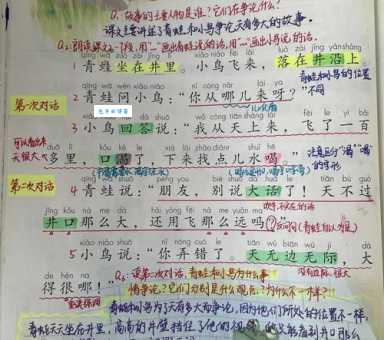 Q1 故事的主要人物是谁？它们在争论什么？
课文主要讲述了青蛙和小鸟争论天有多大的故事。
Q2：朗读课文2-7段，用"—"画出青蛙说的话，用"﹏"画出小鸟说的话。
qīng wā zuò zài jǐng lǐ xiǎo niǎo fēi lái luò zài jǐng yán shàng
1 青蛙坐在井里。小鸟飞来，落在井沿上。
青蛙和小鸟的位置
不同
第一次对话
qīng wā wèn xiǎo niǎo nǐ cóng nǎ er lái ya
2 青蛙问小鸟："你从哪儿来呀？"
xiǎo niǎo huí dá shuō wǒ cóng tiān shàng lái fēi le yì bǎi
3 小鸟回答说："我从天上来，飞了一百
可以看出来
天很大
duō lǐ kǒu kě le xià lái zhǎo diǎn er shuǐ hē
多里，口渴了，下来找点儿水喝。"
注意区分"渴""喝"
的字形
第二次对话
qīng wā shuō péng you bié shuō dà huà le tiān bú guò
4 青蛙说："朋友，别说大话了！天不过
jǐng kǒu nà me dà hái yòng fēi nà me yuǎn ma
井口那么大，还用飞那么远吗？"
反问句
xiǎo niǎo shuō nǐ nòng cuò le tiān wú biān wú jì dà
5 小鸟说："你弄错了。天无边无际，大
de hěn na
得很哪！"
Q3：读第二次对话，青蛙和小鸟为什么事
情争论？它们分别是什么观点？为什么不一样？
青蛙和小鸟为了天有多大而争论，因为他们所处的位置不一样，
青蛙天天坐在井里，高高的井壁挡住了他的视线